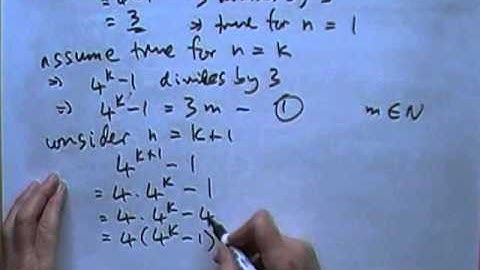 = 3 ⇒ true for n = 1
assume true for n = k
⇒ 4^k - 1 divides by 3
⇒ 4^k - 1 = 3m - ① m ∈ N
consider n = k+1
4^{k+1} - 1
= 4 . 4^k - 1
= 4 . 4^k - 4
= 4(4^k - 1)